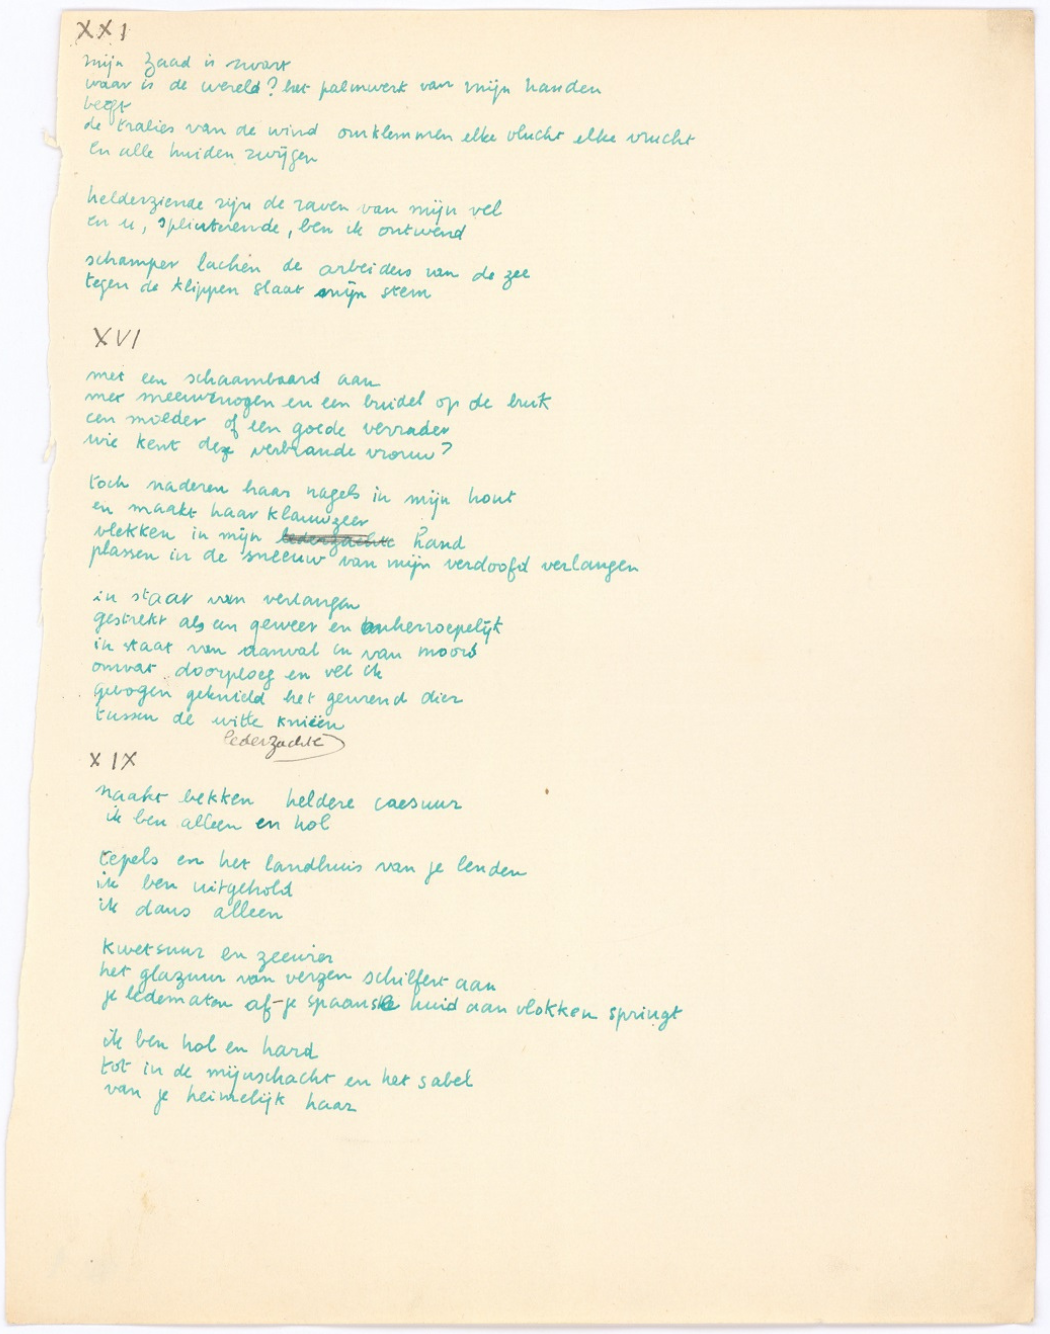 XXI
mijn zaad is zwart
waar is de wereld? het palmwerk van mijn handen
beeft
de tralies van de wind omklemmen elke vlucht elke vrucht
En alle huiden zwijgen
helderziende zijn de raven van mijn vel
en u, splinterende, ben ik ontwend
schamper lachen de arbeiders van de zee
tegen de klippen slaat mijn stem
XVI
met een schaambaard aan
met meeuwenogen en een buidel op de buik
een moeder of een goede verrader
wie kent deze verbrande vrouw?
toch naderen haar nagels in mijn hout
en maakt haar klauwzeer
vlekken in mijn lederzachte hand
plassen in de sneeuw van mijn verdoofd verlangen
in staat van verlangen
gestrekt als een geweer en onherroepelijk
in staat van aanval en van moord
omvat doorploeg en vel ik
gebogen geknield het geurend dier
tussen de witte knieën
lederzachte
XIX
naakt bekken heldere caesuur
ik ben alleen en hol
tepels en het landhuis van je lenden
ik ben uitgehold
ik dans alleen
kwetsuur en zeewier
het glazuur van verzen schilfert aan
je ledematen af - je spaanse huid aan vlokken springt
ik ben hol en hard
tot in de mijnschacht en het sabel
van je heimelijk haar